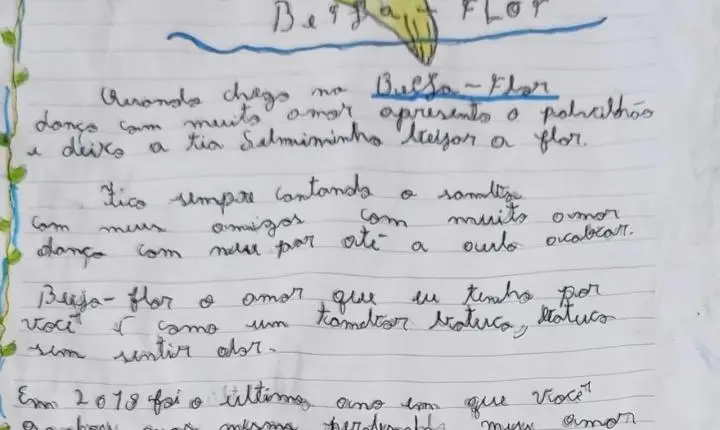 Beija-FLOr
Quando chego na Beija-Flor
danço com muito amor apresento o pahvilhão
e deixo a tia Selmiminho beijar a flor.
Fico sempre cantando o samba
com meus amigos com muito amor
danço com meu par até a aula acabar.
Beija-flor o amor que eu tenho por
você é como um tambor batuca, batuca
sem sentir dor.
Em 2018 foi o último ano em que você
ganhou mas mesmo perdendo meu amor